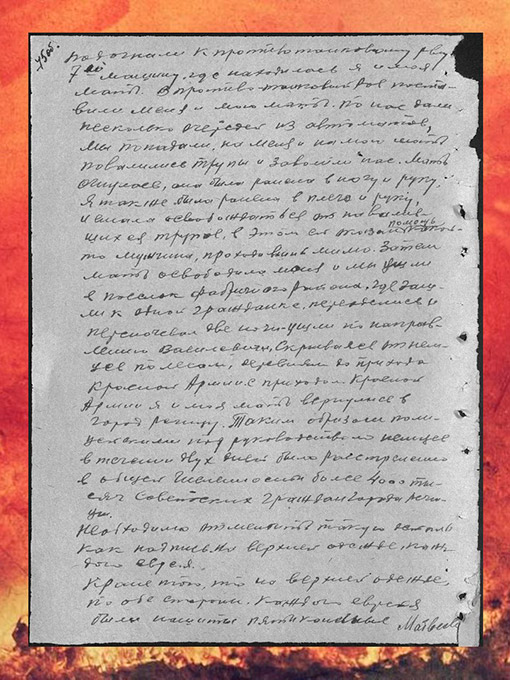 45 об.
подогнали к противотанковому рву
7ую машину, где находилась я и моя
мать. В противотанковый ров поста-
вили меня и мою мать. По нас дали
несколько очередей из автоматов,
мы попадали, на меня и на мою мать
повалились трупы и завалили нас. Мать
очнулась, она была ранена в ногу и руку,
я также была ранена в плечо и руку,
и стала освобождаться от навалив-
шихся трупов, в этом ей оказал помощь какой-
то мужчина, проходивший мимо. Затем
мать освободила меня и мы ушли
в поселок фабричного района, где заш-
ли к одной гражданке, переоделись и
переночевав две ночи ушли по направ-
лению Василевичи, скрываясь от нем-
цев по лесам, деревням до прихода
Красной Армии с приходом Красной
Армии я и моя мать вернулись в
город Речицу. Таким образом поли-
цейскими под руководством немцев
в течении двух дней было расстреляно
в общей численности более 4000 ты-
сяч Советских граждан города Речи-
цы.
Необходимо отметить такую деталь
как надпись на верхней одежде, каж-
дого еврея.
Кроме того, что на верхней одежде,
по обе стороны каждого еврея
были нашиты пятиконечные